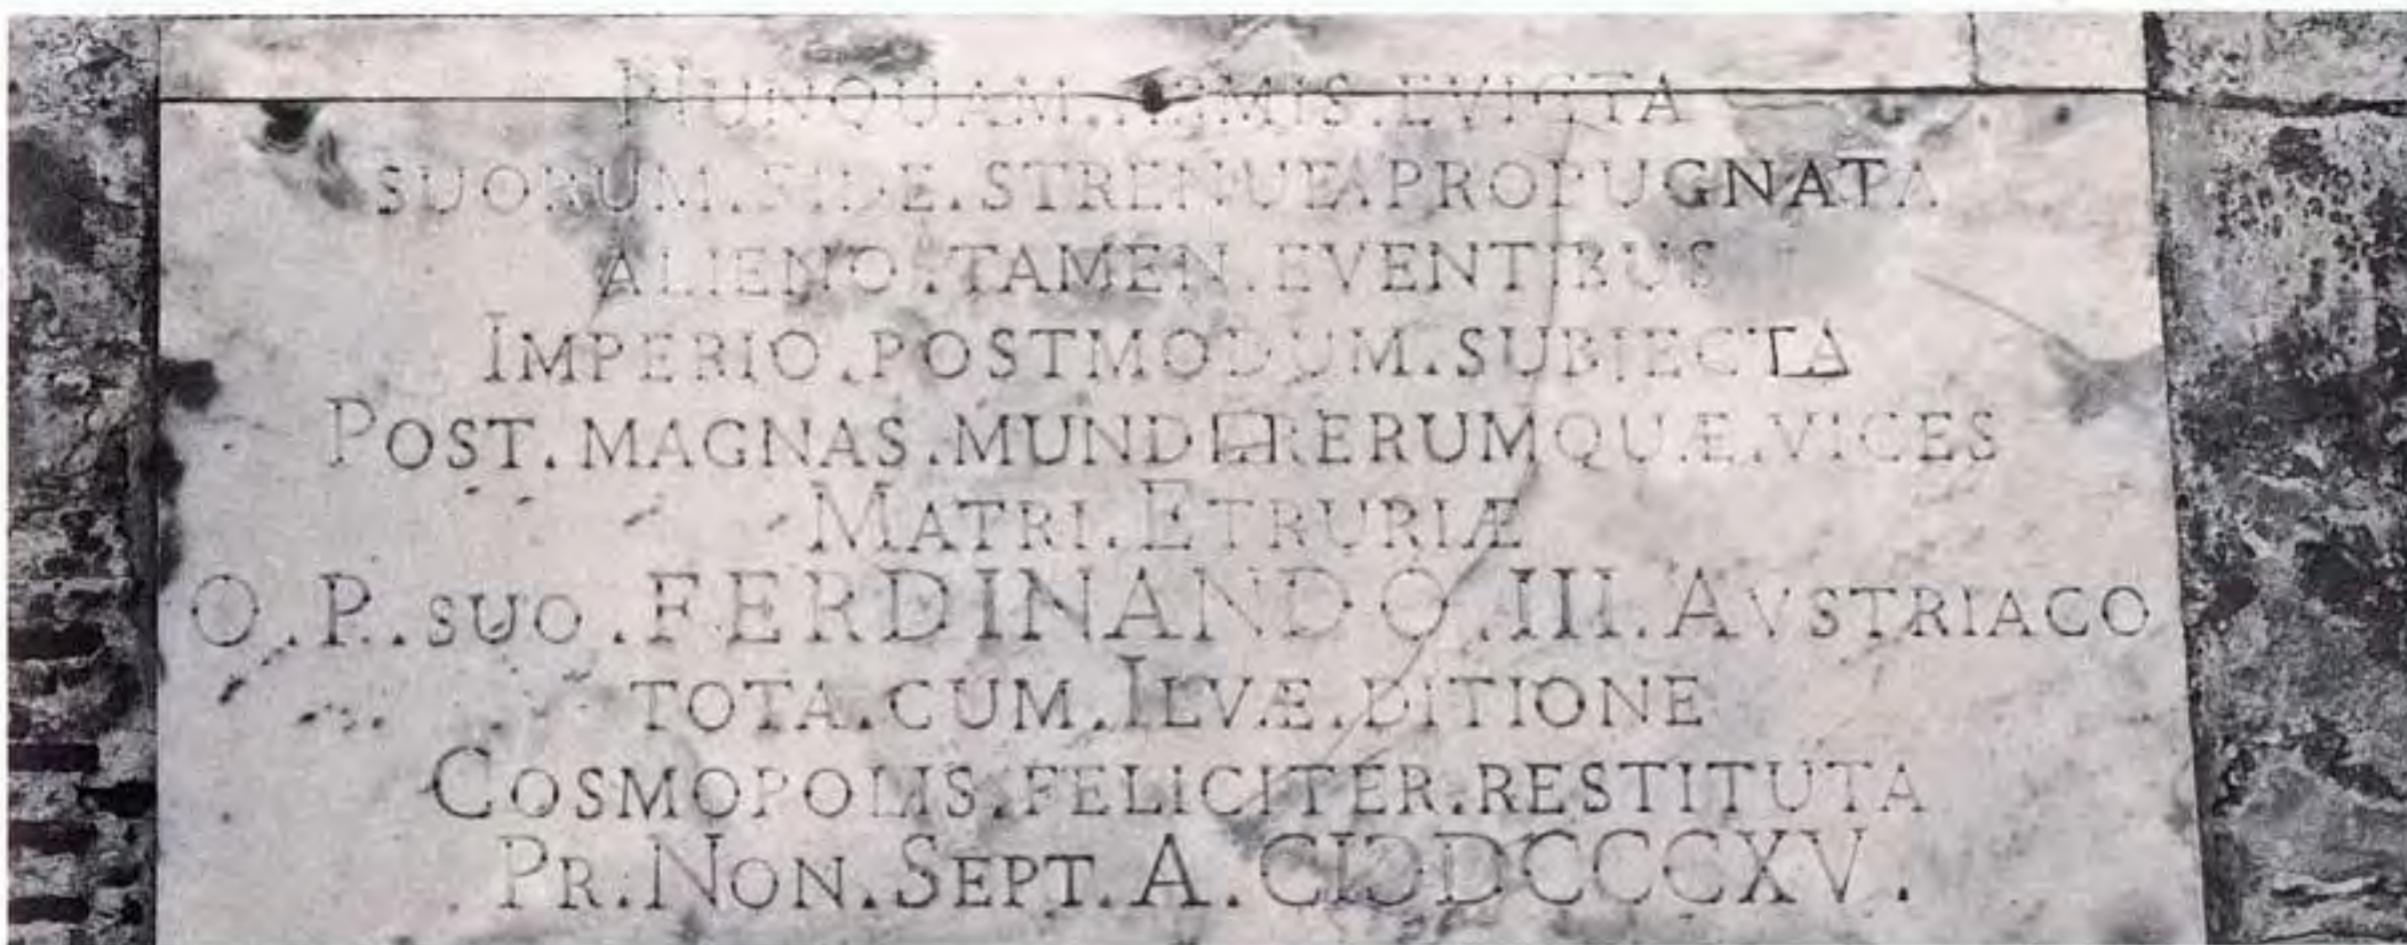 NUNQUAM . ARMIS . EVICTA
SUORUM . FIDE . STRENUE . PROPUGNATA
ALIENO . TAMEN . EVENTIBUS
IMPERIO . POSTMODUM . SUBJECTA
POST . MAGNAS . MUNDI . RERUMQUÆ . VICES
MATRI . ETRURIÆ
O . P . SUO . FERDINANDO . III . AVSTRIACO
TOTA . CUM . ILVÆ . DITIONE
COSMOPOLIS . FELICITER . RESTITUTA
PR . NON . SEPT . A . CIƆDCCCXV .